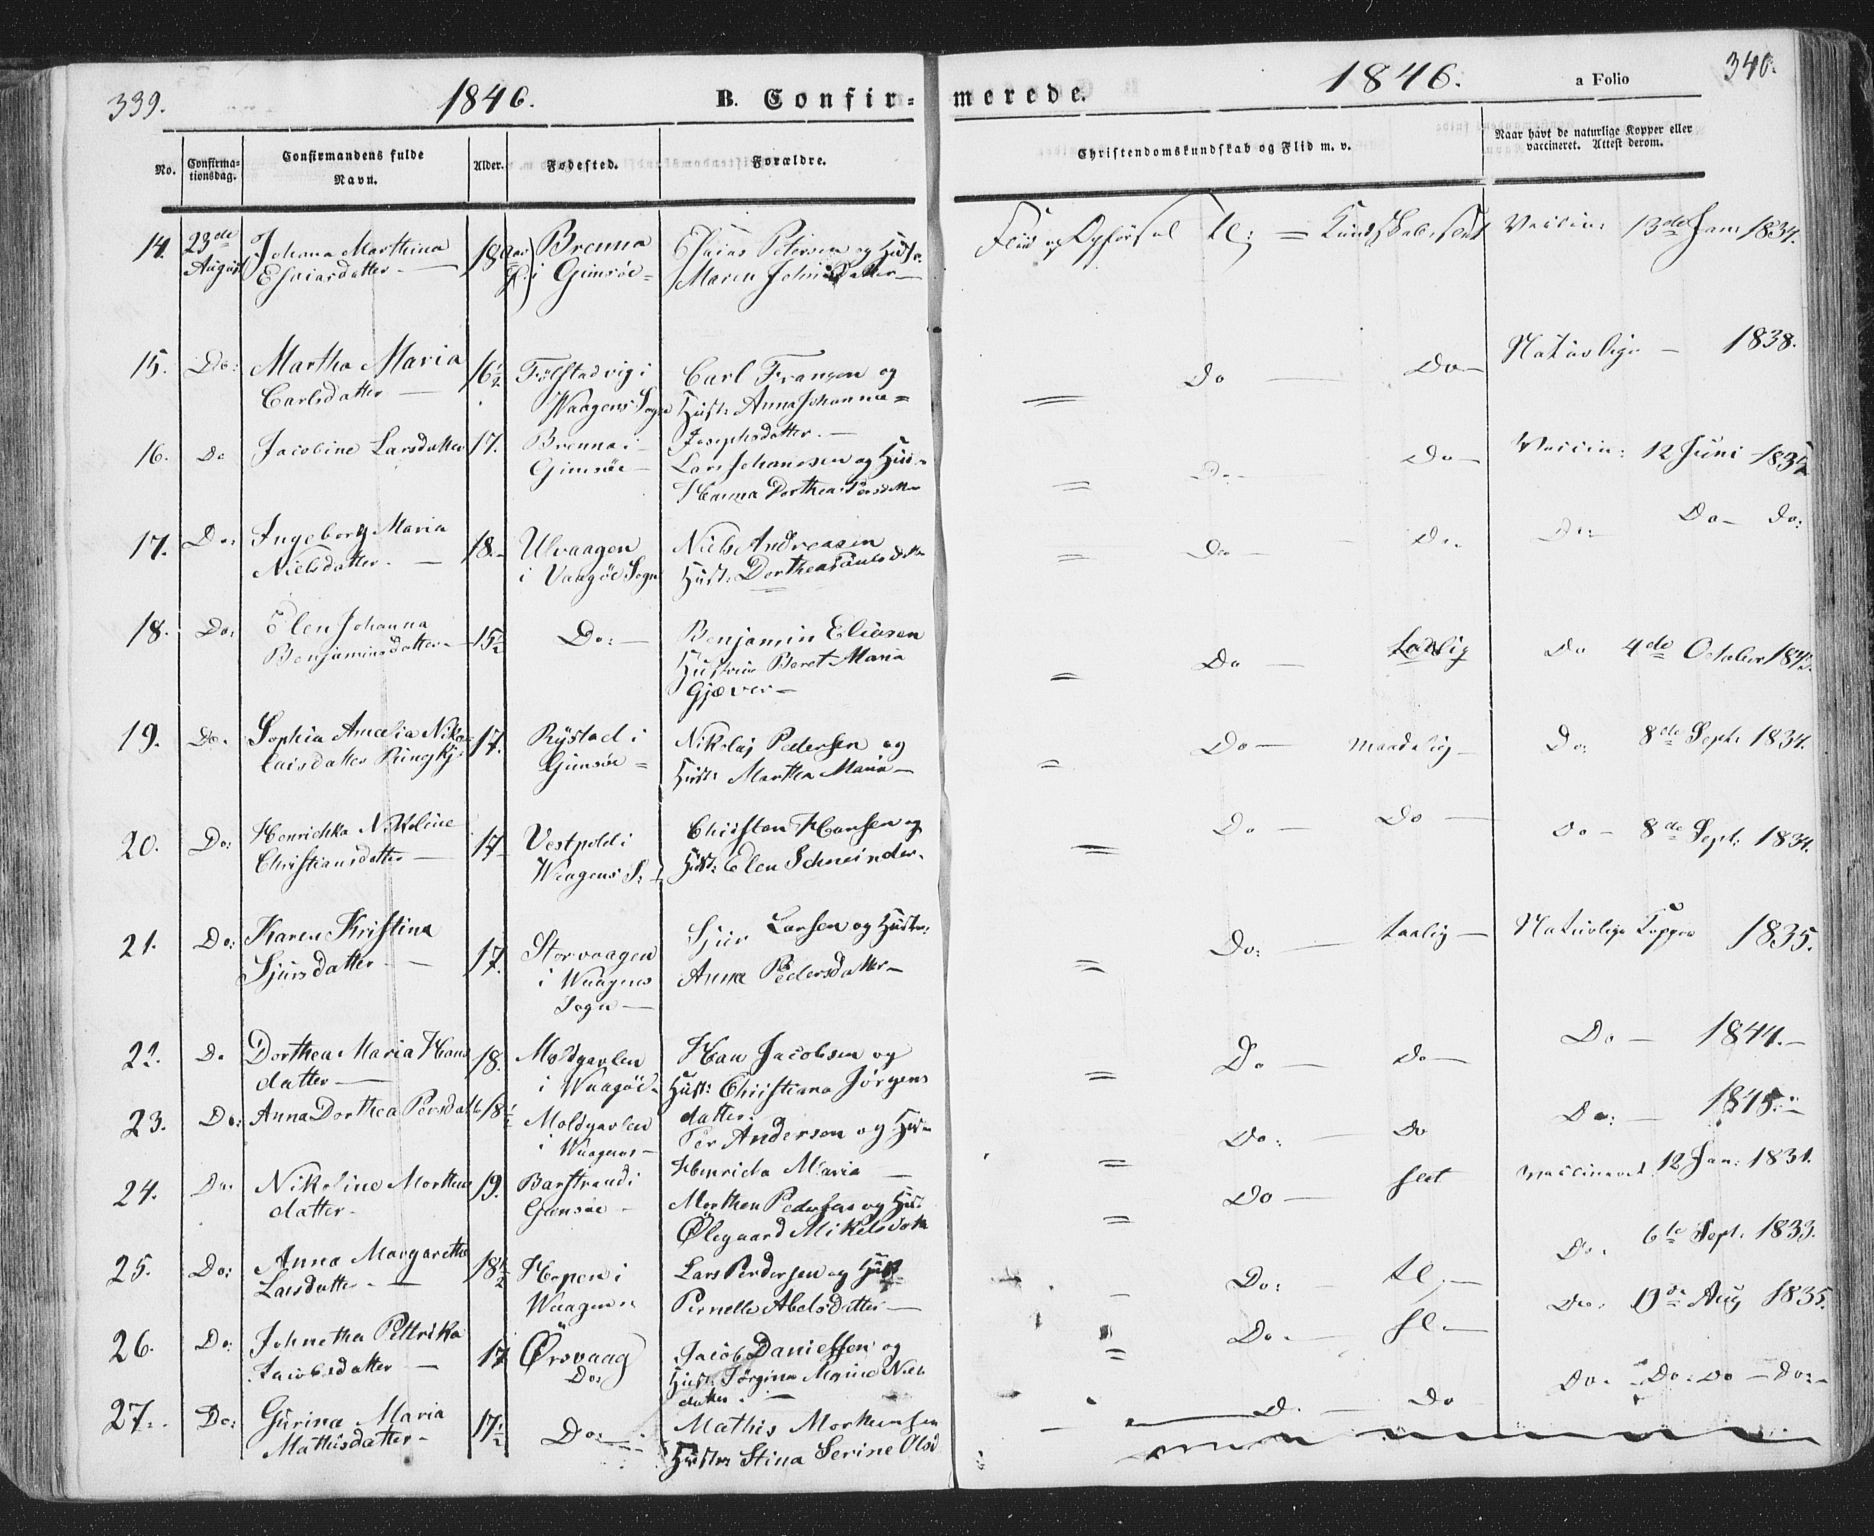 339. 1846. B. Confir= merede. 1846. a Folio 340.
No. Confirma-tionsdag. Confirmandens fulde Navn. Alder. Fødested. Forældre. Christendomskundskab og Flid m. v. Naar havt de naturlige Kopper eller vaccineret. Attest derom.
14. 23de August Johana Marthina Esaiasdatter — 18 Aar Brenna i Gimsøe= Esaias Petersen og Hustr. Maren Flid og Opførsel tl: = Kundskab: slet Vaccin: 13de Jan 1834.
15. Do: Martha Maria Carlsdatter — 16½ i Waagens Sogn Carl Fransen og Hust: Anna Johanna= Josephsdatter. — = Do — Do — Naturlige — 1838.
16. Do Jacobine Larsdatter 17. Brenna i Gimsøe — Lars Johansen og Hus= Hanna Dorthea Persdatter = Do — Do — Vaccin: 12 Juni
17. Do: Ingeborg Maria Nielsdatter. — 18. — Ulvaagen i Vaagøe Sogn Niels Andreasen Hust: Dorthea = Do — Do. Do: Do — Do:
18. Do: Elen Johanna Benjaminsdatter — 15½ Do: — Benjamin Eliasen Hustrue Beret Maria Gjæver — = Do — taalig Do 4de October
19. Do. Sophia Amalia Niko= laisdatter 17. Rystad i Gimsøe = Nikolaj Pedersen og Hust: Martha Maria — = Do — maadelig — Do: 8de Sept. 1834.
20. Do: Henrichka Nikoline Christiansdatter — 17 i Waagens S: Christen Hansen og Hust: Elen Schneinder. = Do — Do — Do — 8de Sept: 1834.
21. Do: Karen Kristina Sjursdatter — 17. Storvaagen i Waagens Sogn — Sjur Larsen og Hustr: Anna Pedersdatter — = Do: — taalig — Naturlige Kopper 1835.
22. Do Dorthea Maria Hans datter — 18. Moldgavlen i Waagøe. Han Jacobsen og Hust: Christiana Jørgens datter. = Do — Do — Do — 1844. —
23. Do: Anna Dorthea Persdatt 18½ Moldgavlen i Waagens — Per Andersen og Hus= Henricka Maria — = Do: — Do Do: — 1845:
24. Do. Nikoline Morthens datter — 19. Barstrand i Gimsøe — Morthen Pedersen og Hus: Ølegaard Mikelsdatt = Do — slet Vaccineret 12 Jan: 1831.
25. Do: Anna Margaretha Larsdatter — 18½ Hopen i Waagens Lars Pedersen og Hust Pernelle Abelsdatter — — Do: — tl: — Do. 6te Sept. 1833.
26. Do: Johnetha Pettrika Jacobsdatter — 17 Ørsvaag Do: Jacob Danielsen og Hust: Jørgina Marine Niels datter. — = Do. — sl — Do: Aug 1835.
27. Do: Gurina Maria Mathisdatter — 17½ Do: — Mathis Morthensen Hustru Stina Serine Olsd — D. — Do Do. — Do: Do — Do: —